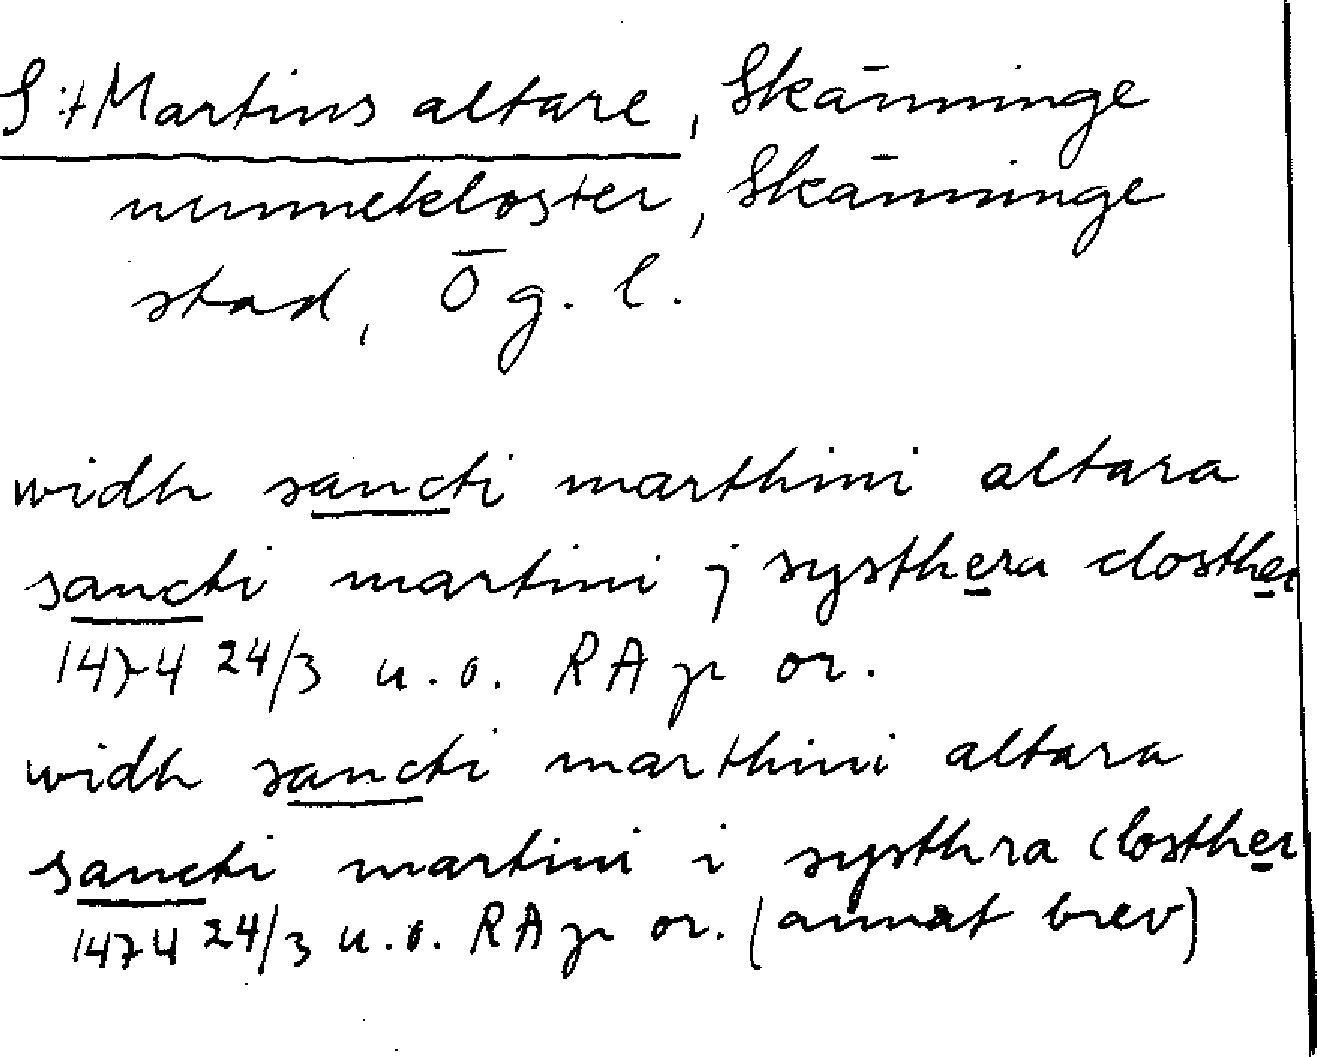 S:t Martins altare, Skänninge
nunnekloster, Skänninge
stad, Ög. l.
widh sancti marthini altara
sancti martini j systhera closther
1474 24/3 u.o. RAp or.
widh sancti marthini altara
sancti martini i systhra closther
1474 24/3 u.o. RAp or. (annat brev)